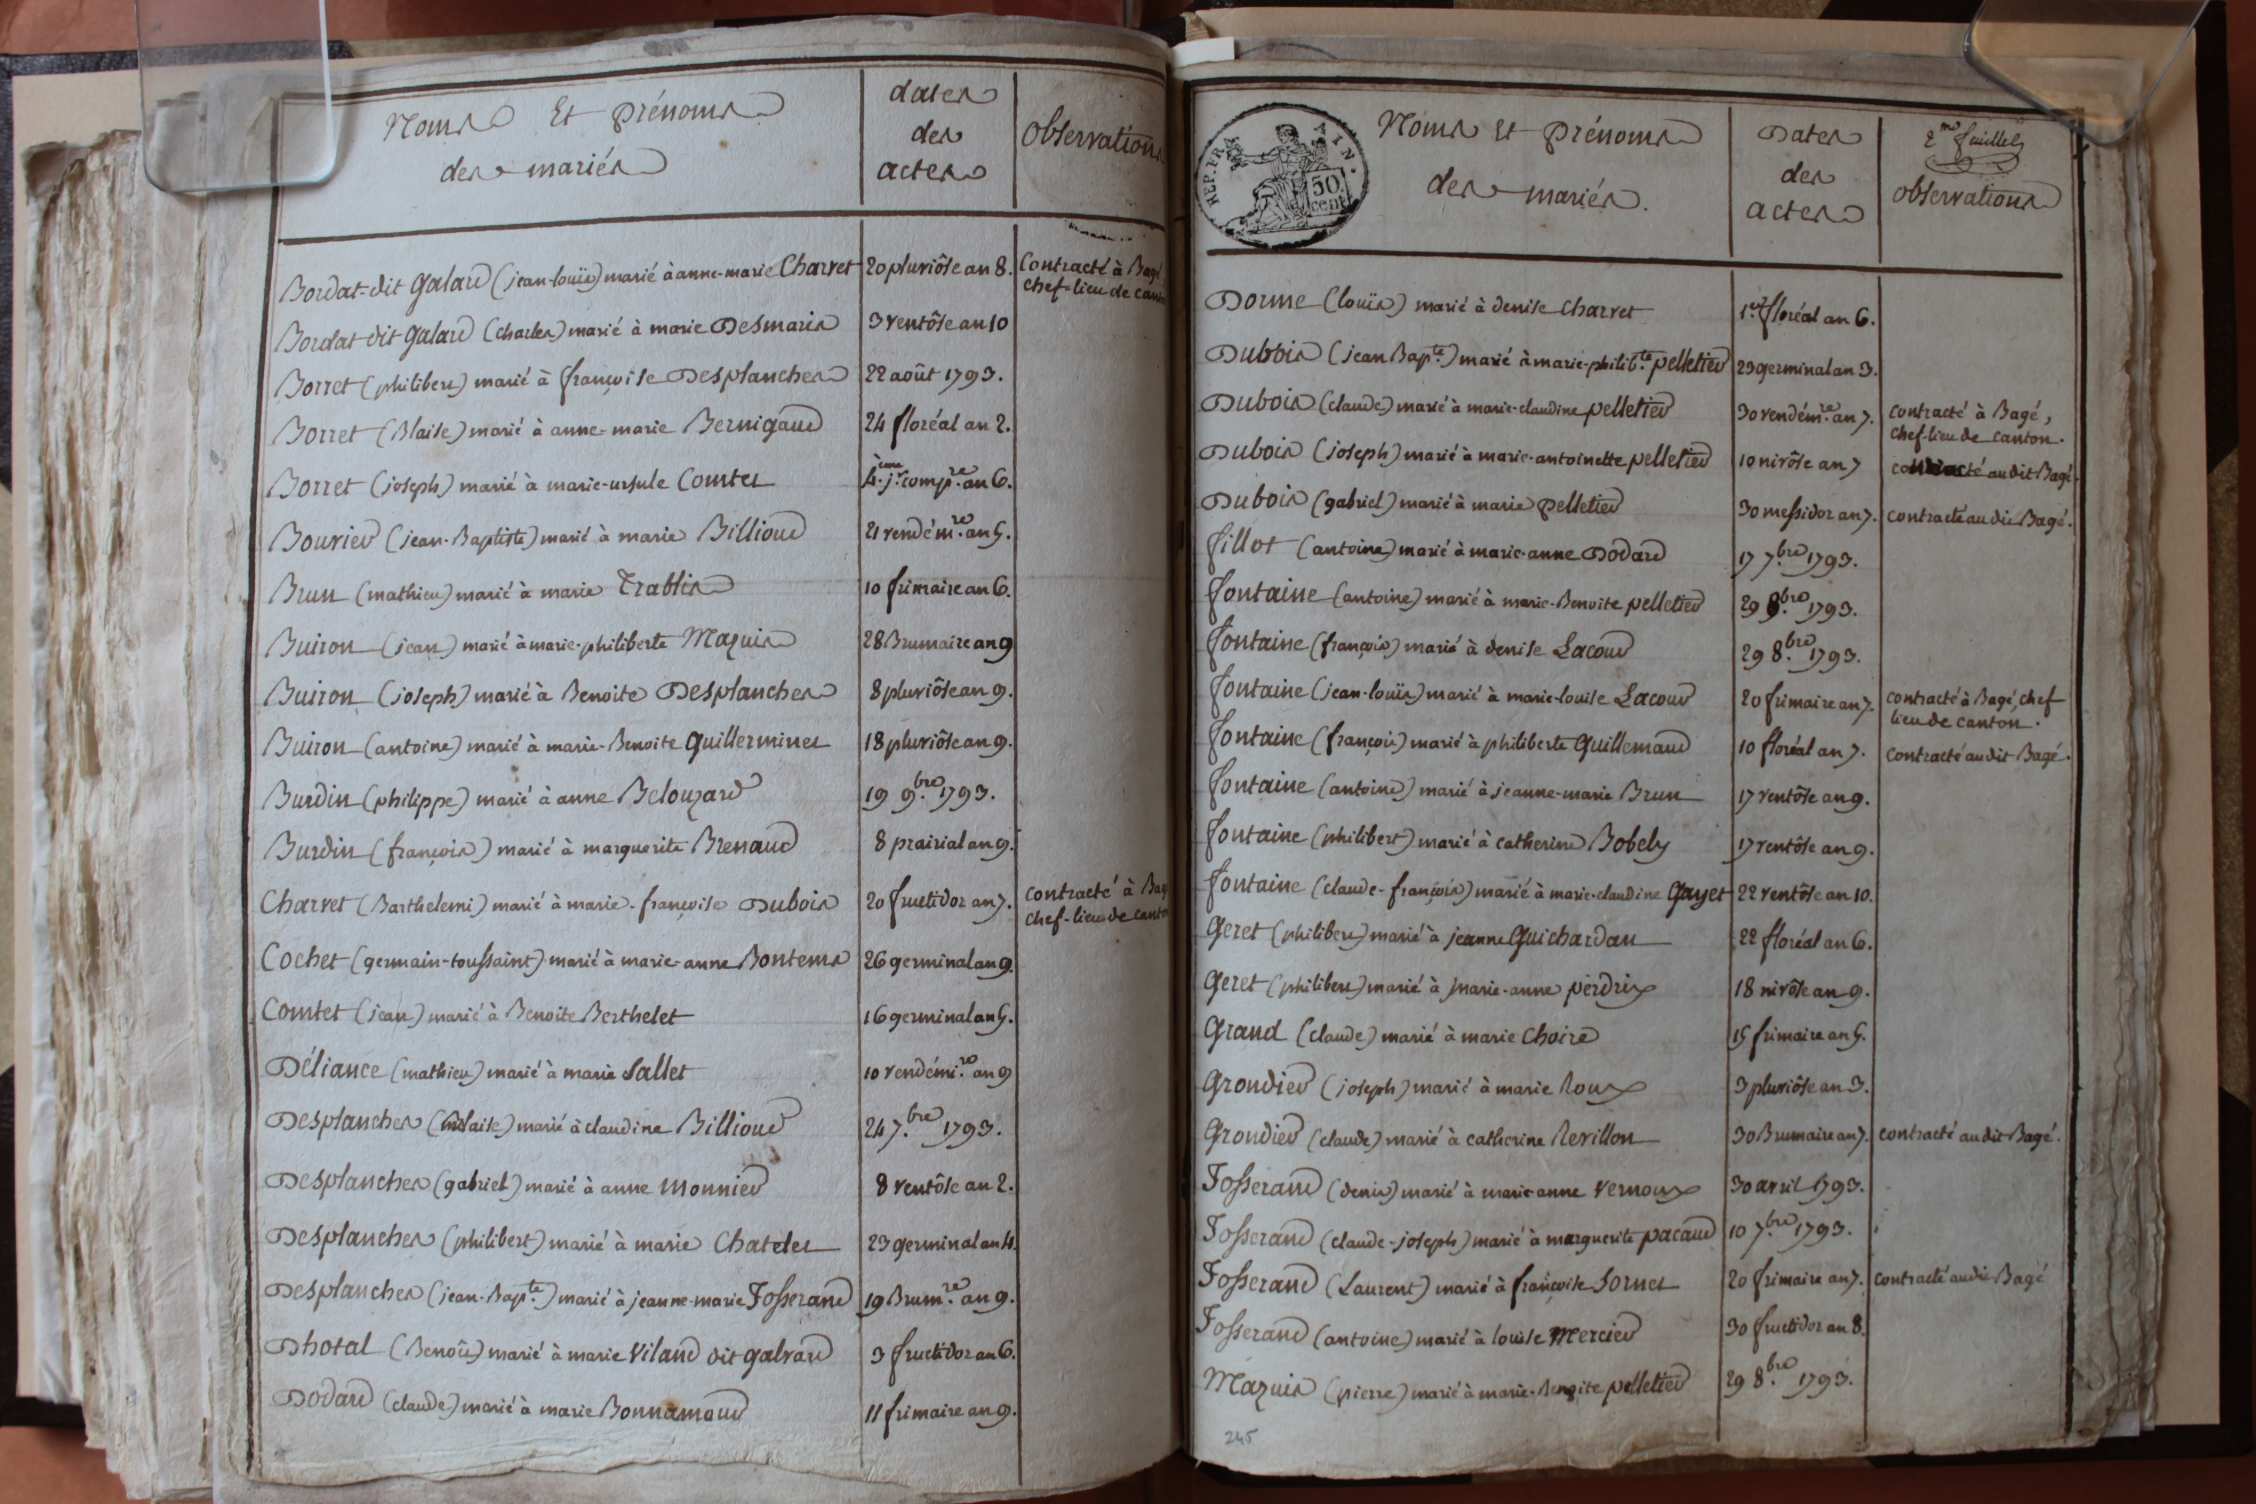 Noms Et prénoms
des mariés
dates
des
actes
Observations
Bordat-dit Galand (jean-louis) marié à anne-marie Charvet 20 pluviôse an 8. Contracté à Bagé
chef-lieu de canton
Bordat dit Galand (charles) marié à marie Desmaris 3 ventôse an 10
Borret (philibert) marié à françoise Desplanches 22 août 1793.
Borret (Blaise) marié à anne-marie Bernigaud 24 floréal an 2.
Borret (joseph) marié à marie-ursule Comtet 4.ème j.r comp.re an 6.
Bourier (jean-Baptiste) marié à marie Billioud 21 vendém.re an 5.
Brun (mathieu) marié à marie Trablis 10 frimaire an 6.
Buiron (jean) marié à marie-philiberte Mazuis 28 Brumaire an 9
Buiron (joseph) marié à Benoite Desplanches 8 pluviôse an 9.
Buiron (antoine) marié à marie-Benoite Guillerminet 18 pluviôse an 9.
Burdin (philippe) marié à anne Belouzard 19 9.bre 1793.
Burdin (françois) marié à marguerite Brenaud 8 prairial an 9.
Charvet (Barthelemi) marié à marie-françoise Dubois 20 fructidor an 7. contracté à Bagé
chef-lieu de canton
Cochet (germain-toussaint) marié à marie-anne Bontems 26 germinal an 9.
Comtet (jean) marié à Benoite Berthelet 16 germinal an 5.
Déliance (mathieu) marié à marie Sallet 10 vendémi.re an 9
Desplanches (Blaise) marié à claudine Billioud 24 7.bre 1793.
Desplanches (gabriel) marié à anne Monnier 8 ventôse an 2.
Desplanches (philibert) marié à marie Chatelet 23 germinal an 4.
Desplanches (jean-Bap.te) marié à jeanne-marie Josserand 19 Brum.re an 9.
Dhotal (Benoît) marié à marie Viland dit galvand 3 fructidor an 6.
Dodard (claude) marié à marie Bonnamour 11 frimaire an 9.
REP. FRA. AIN.
50
cent
Noms Et prénoms
des mariés.
Dates
des
actes
2.me feuillet
observations
Dorme (louis) marié à denise Charvet 1.er floréal an 6.
Dubois (jean Bap.te) marié à marie-philib.te pelletier 23 germinal an 3.
Dubois (claude) marié à marie-claudine pelletier 30 vendém.re an 7. contracté à Bagé,
chef-lieu de canton.
Dubois (joseph) marié à marie-antoinette pelletier 10 nivôse an 7 contracté audit Bagé.
Dubois (gabriel) marié à marie pelletier 30 messidor an 7. contracté audit Bagé.
fillot (antoine) marié à marie-anne Dodard 17 7.bre 1793.
fontaine (antoine) marié à marie-Benoite pelletier 29 8.bre 1793.
fontaine (françois) marié à denise Lacour 29 8.bre 1793.
fontaine (jean-louis) marié à marie-louise Lacour 20 frimaire an 7. contracté à Bagé, chef
lieu de canton.
fontaine (françois) marié à philiberte Guillemaud 10 floréal an 7. contracté audit Bagé.
fontaine (antoine) marié à jeanne-marie Brun 17 ventôse an 9.
fontaine (philibert) marié à catherine Bobely 17 ventôse an 9.
fontaine (claude-françois) marié à marie-claudine Gayet 22 ventôse an 10.
Geret (philibert) marié à jeanne Guichardan 22 floréal an 6.
Geret (philibert) marié à marie-anne perdrix 18 nivôse an 9.
Grand (claude) marié à marie Choire 15 frimaire an 5.
Grondier (joseph) marié à marie Roux 3 pluviôse an 3.
Grondier (claude) marié à catherine Revillon 30 Brumaire an 7. contracté audit Bagé.
Josserand (denis) marié à marie-anne Vernoux 30 avril 1793.
Josserand (claude-joseph) marié à marguerite pacaud 10 7.bre 1793.
Josserand (Laurent) marié à françoise Sornet 20 frimaire an 7. contracté audit Bagé
Josserand (antoine) marié à louise Mercier 30 fructidor an 8.
Mazuis (pierre) marié à marie-Benoite pelletier 29 8.bre 1793.
245